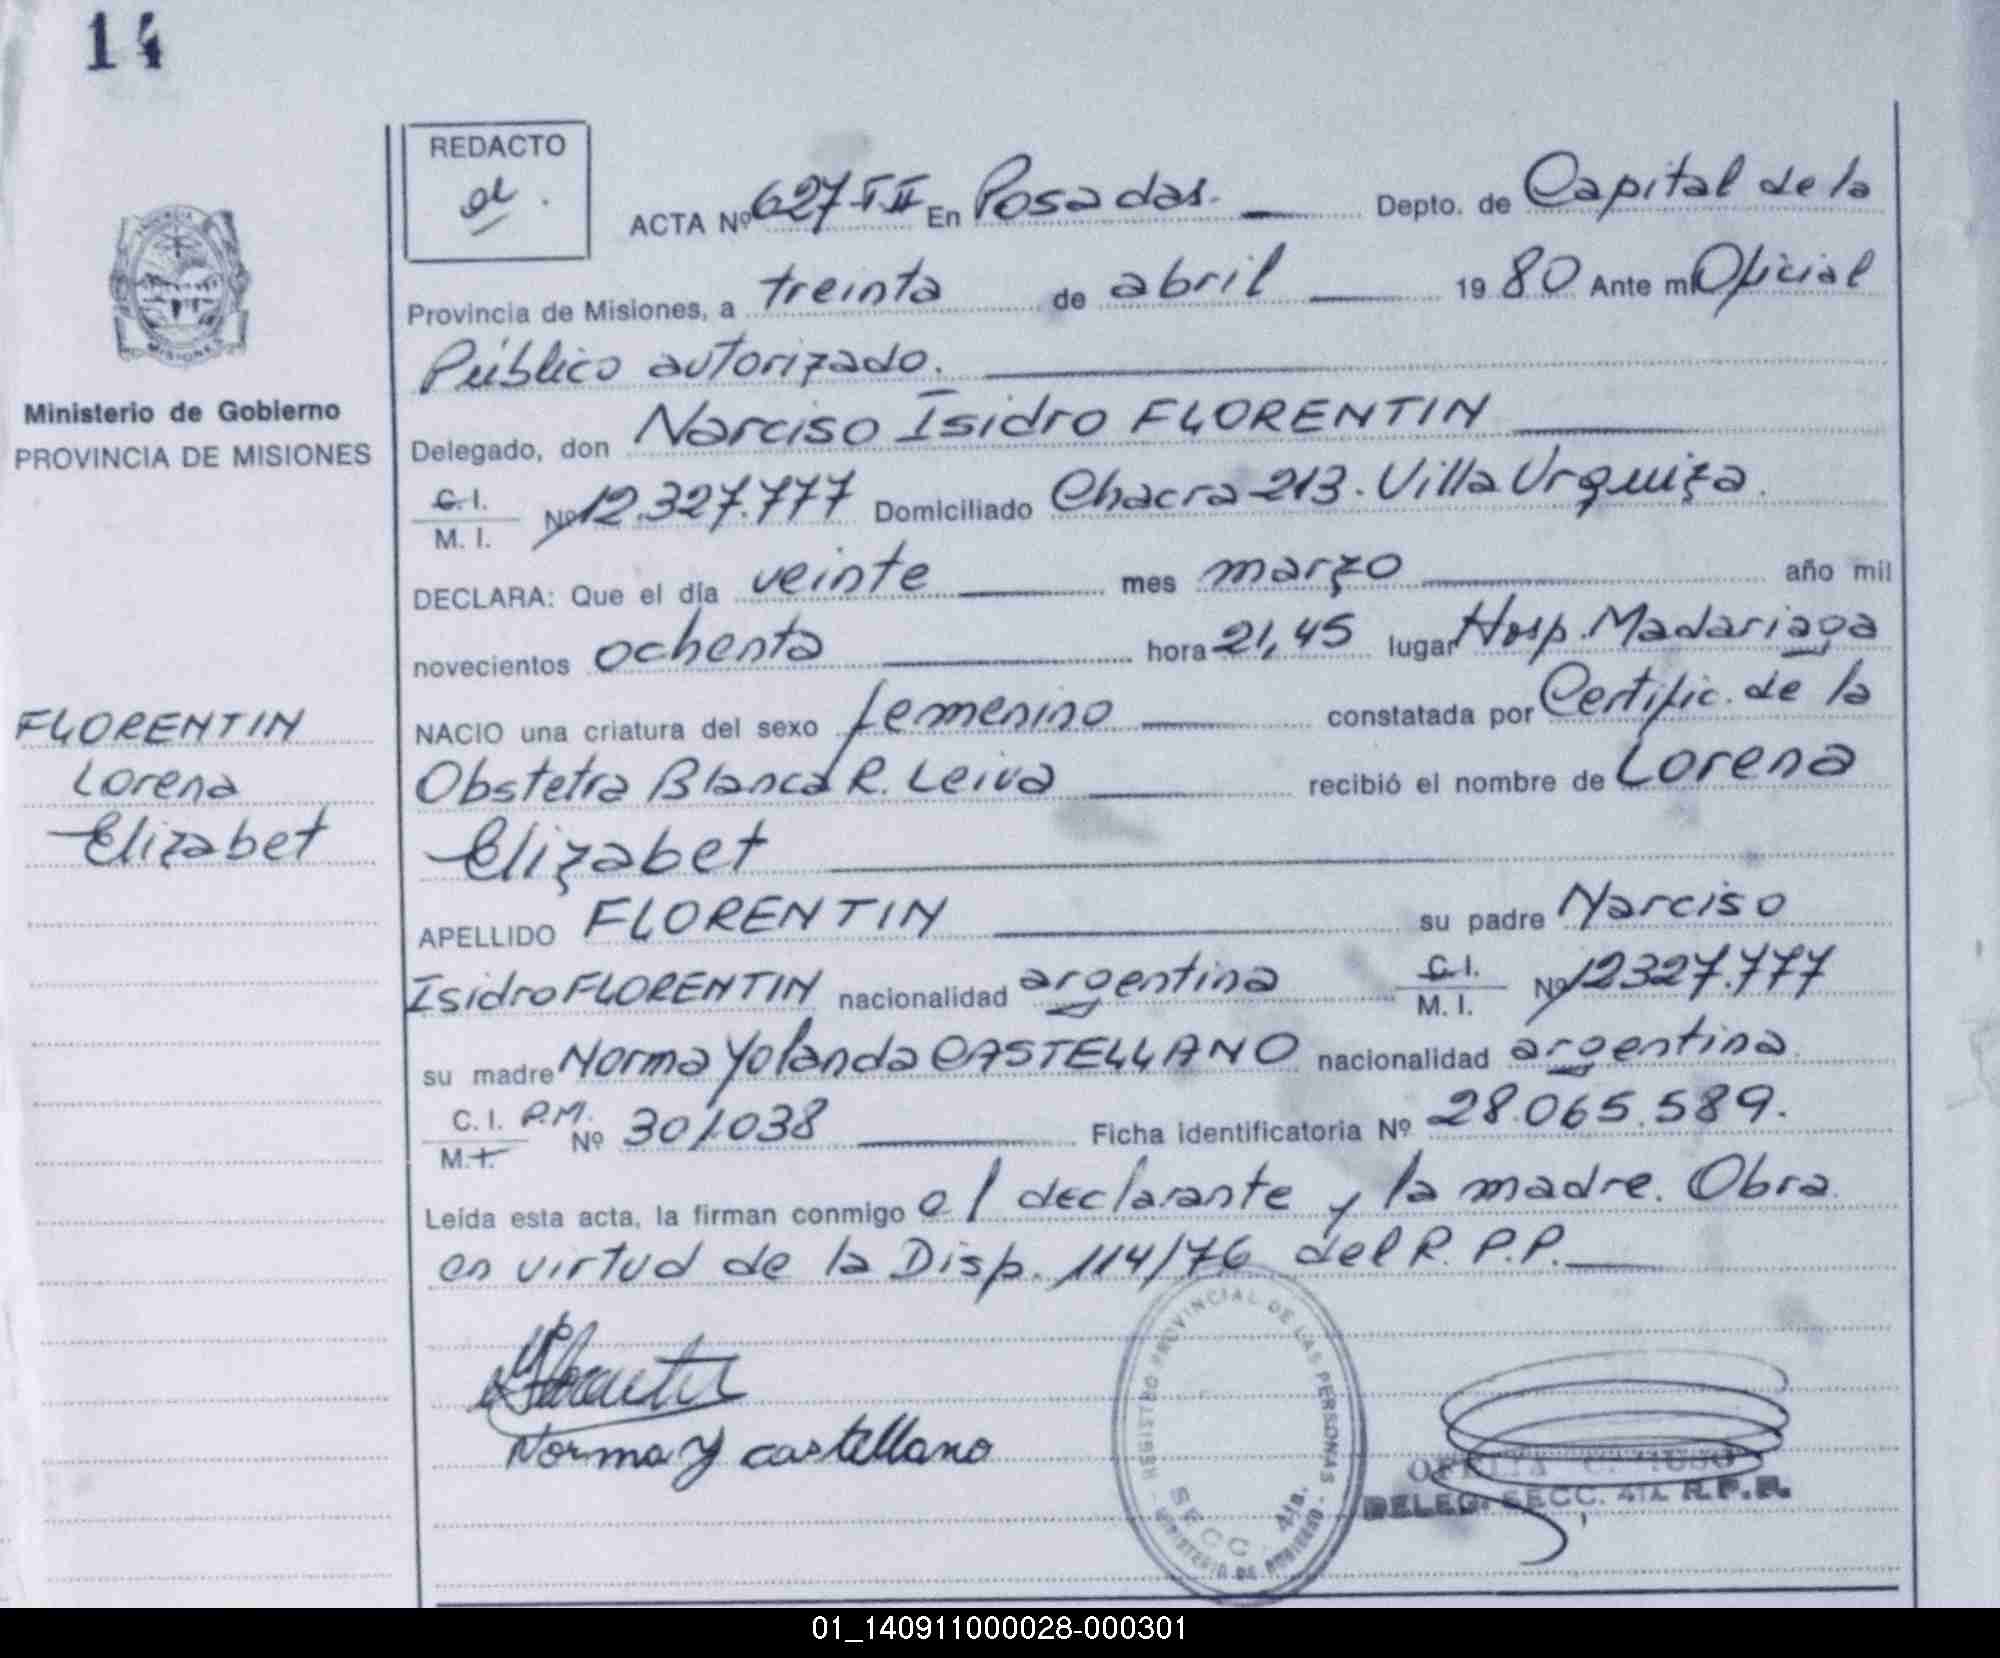 14
REDACTO
ACTA Nº 627-T II En Posadas. Depto. de Capital de la
Provincia de Misiones, a treinta de abril 19 80 Ante mi Oficial
Público autorizado.
Delegado, don Narciso Isidro FLORENTIN
C. I. / M. I. Nº 12.327.777 Domiciliado Chacra 213. Villa Urquiza.
DECLARA: Que el día veinte mes marzo año mil
novecientos ochenta hora 21,45 lugar Hosp. Madariaga
NACIO una criatura del sexo femenino constatada por Certific. de la
Obstetra Blanca R. Leiva recibió el nombre de Lorena
Elizabet
APELLIDO FLORENTIN su padre Narciso
Isidro FLORENTIN nacionalidad argentina C. I. / M. I. Nº 12327.777
su madre Norma Yolanda CASTELLANO nacionalidad argentina.
C. I. P.M. / M. I. Nº 301.038 Ficha identificatoria Nº 28.065.589.
Leída esta acta, la firman conmigo el declarante y la madre. Obra
en virtud de la Disp. 114/76 del R. P.P.
Norma Y castellano
REGISTRO PROVINCIAL DE LAS PERSONAS
SECC. 4ta.
MINISTERIO DE GOBIERNO
DELEG. SECC. 4ta. R.P.P.
PROVINCIA
MISIONES
Ministerio de Gobierno
PROVINCIA DE MISIONES
FLORENTIN
Lorena
Elizabet
01_140911000028-000301